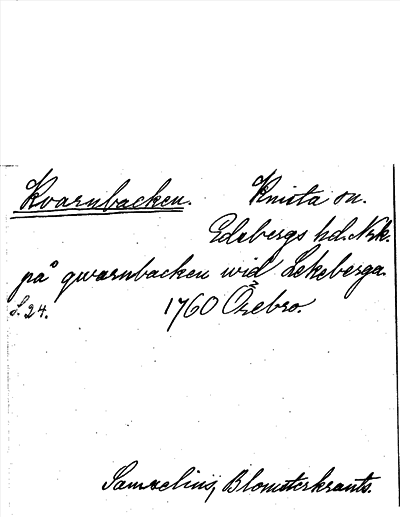 Kvarnbacken. Knista sn.
Edsbergs hd. Nrk.
på qwarnbacken wid Lekeberga.
S. 24. 1760 Örebro.
Samzelius, Blomsterkrants.